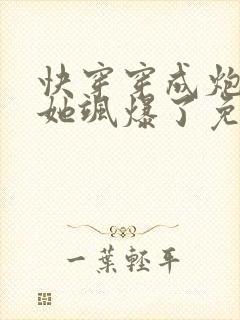 快穿穿成炮
她飒爆了免
一葉輕平